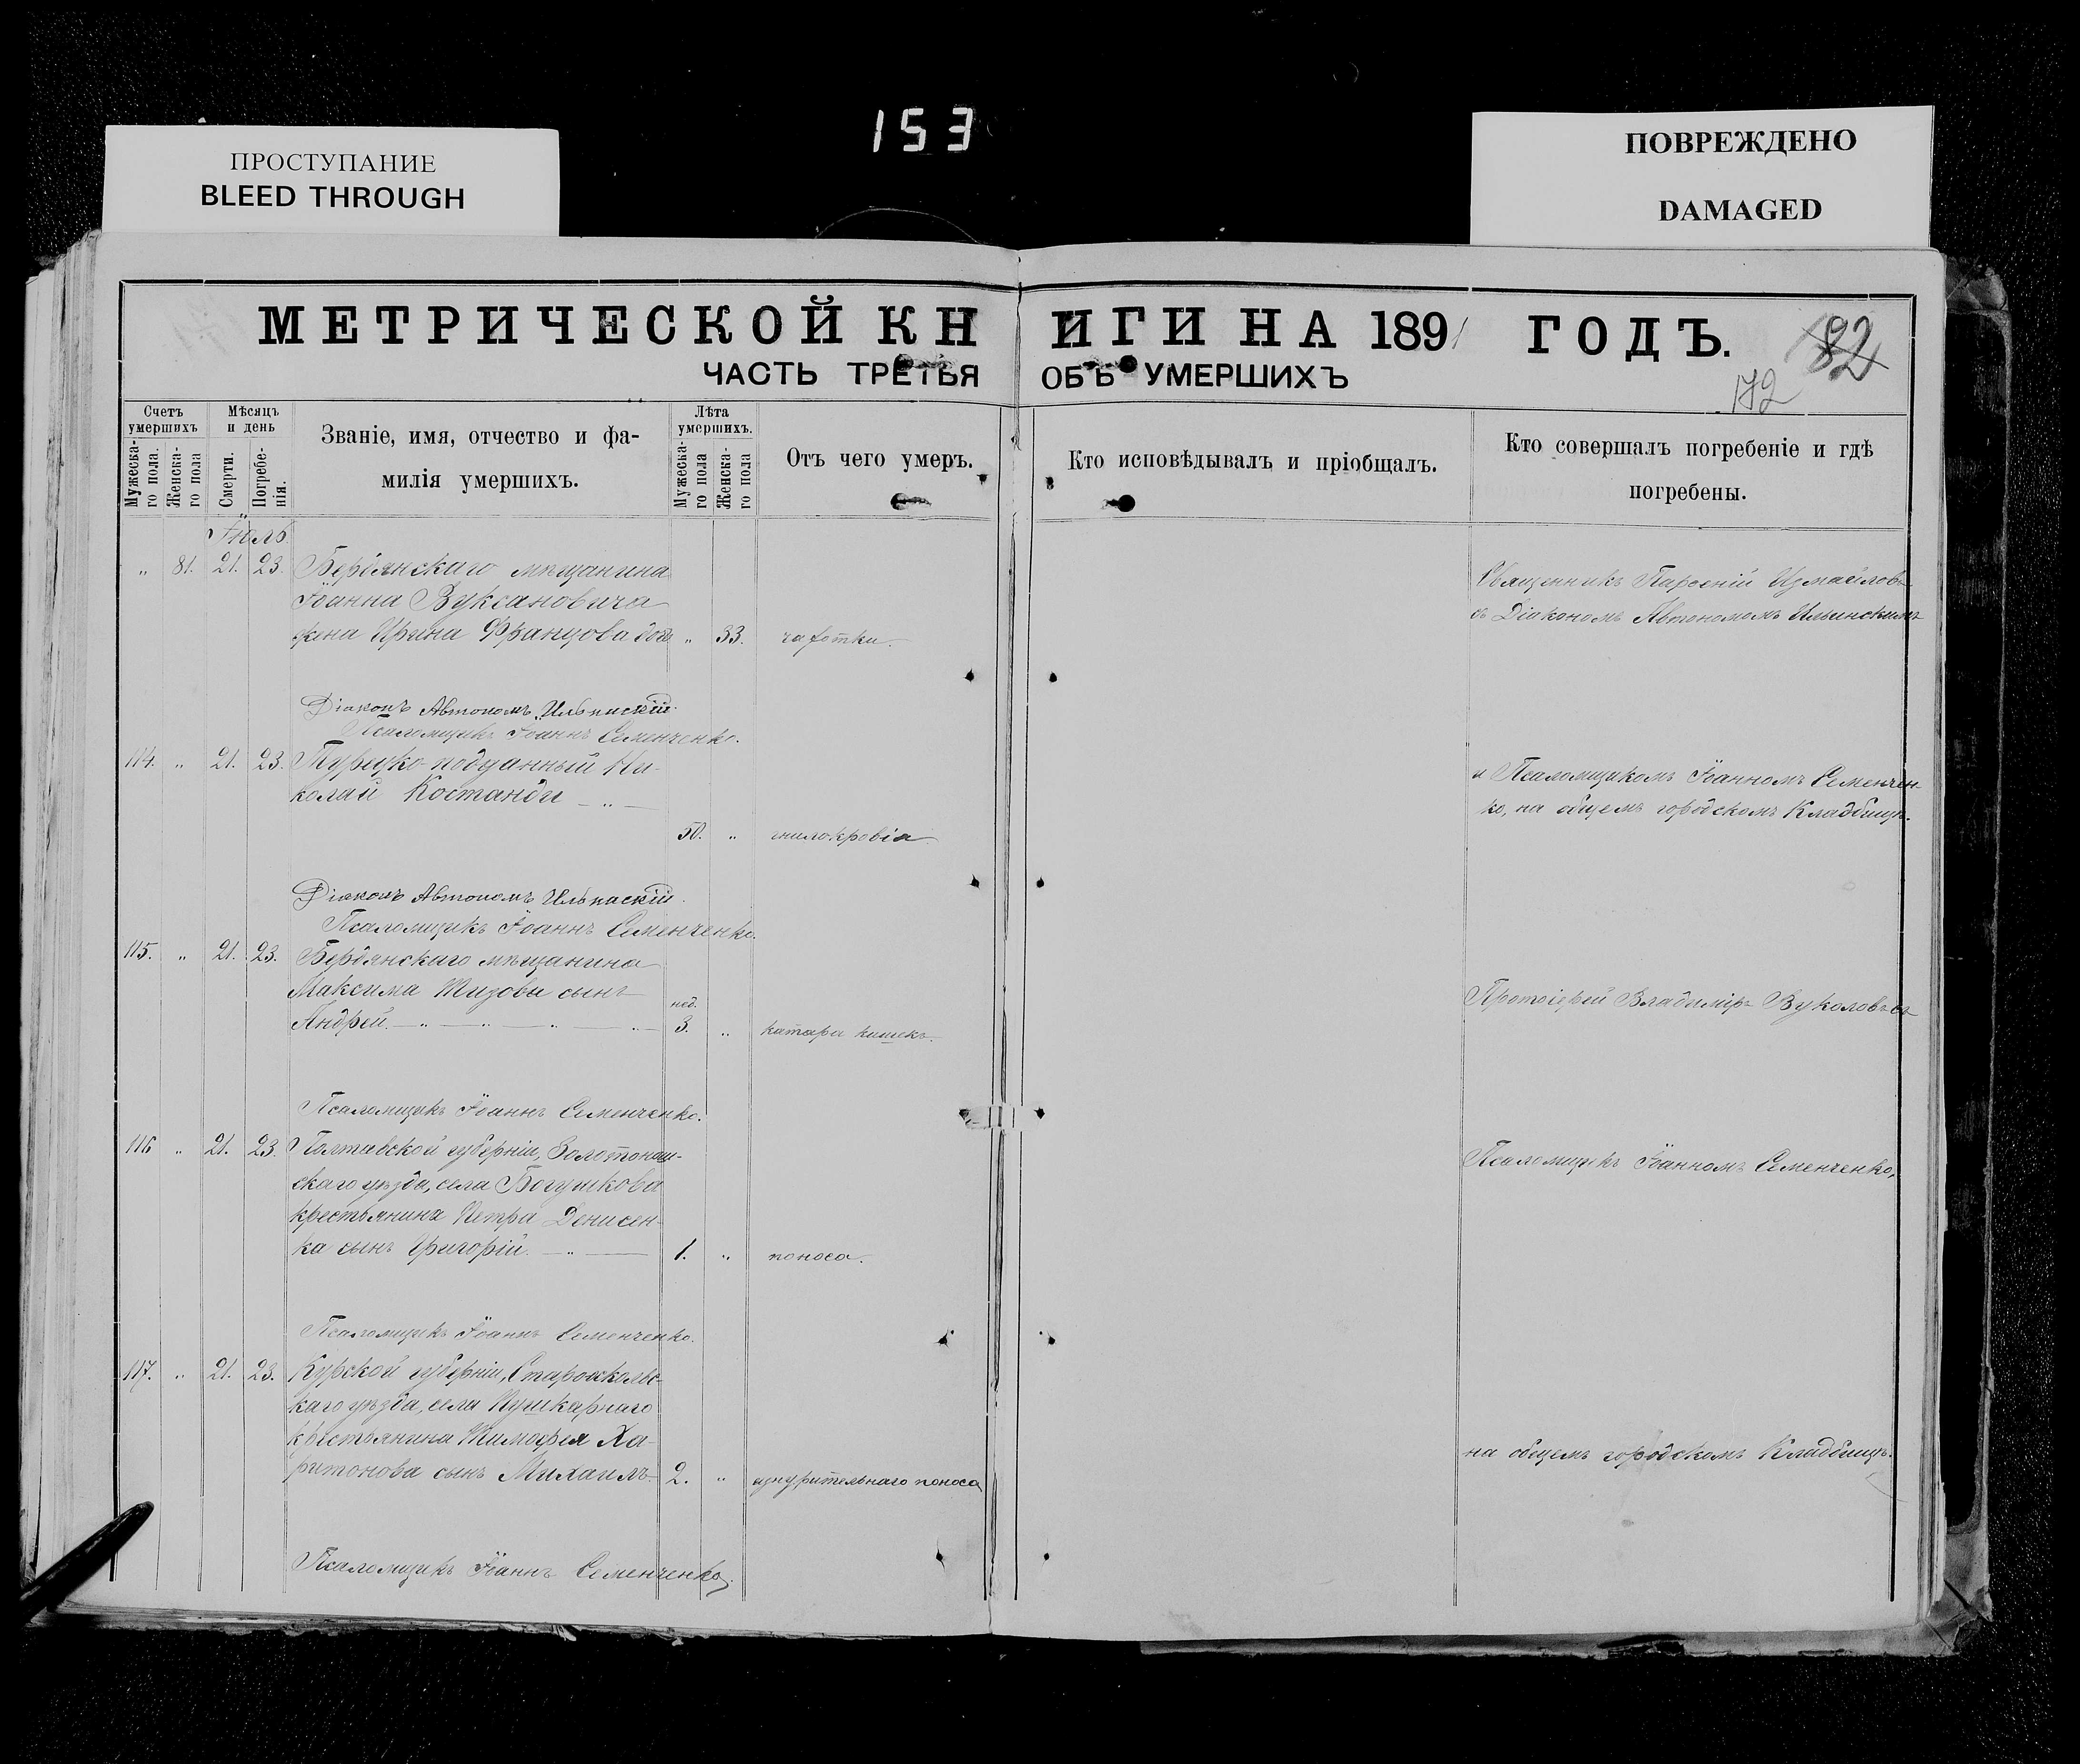 153
ПРОСТУПАНИЕ
BLEED THROUGH
ПОВРЕЖДЕНО
DAMAGED
МЕТРИЧЕСКОЙ КНИГИ НА 1891 ГОДЪ.
182
ЧАСТЬ ТРЕТЬЯ ОБЪ УМЕРШИХЪ
172
Счетъ умершихъ
Мужеска-го пола.
Женска-го пола
Мѣсяцъ и день
Смерти.
Погребе-нія.
Званіе, имя, отчество и фа-
милія умершихъ.
Лѣта умершихъ.
Мужеска-го пола
Женска-го пола
Отъ чего умеръ.
Кто исповѣдывалъ и пріобщалъ.
Кто совершалъ погребеніе и гдѣ
погребены.
Іюль
„ 81. 21. 23. Бердянскаго мѣщанина
Іоанна Вуксановича
жена Ирина Францова „ 33. чахотки.
Священникъ Парѳеній Измайловъ
съ Діакономъ Автономомъ Ильинскимъ
Діаконъ Автономъ Ильинскій.
Псаломщикъ Іоаннъ Семенченко.
114. „ 21. 23. Турецко-подданный Ни-
колай Костанди — „ —
50. „ гнилокровія
и Псаломщикомъ Іоанномъ Семенчен-
ко, на общемъ городскомъ Кладбищѣ.
Діаконъ Автономъ Ильинскій.
Псаломщикъ Іоаннъ Семенченко.
115. „ 21. 23. Бердянскаго мѣщанина
Максима Тизовы сынъ
Андрей. — „ — „ — „ — „ — нед. 3. „ катара кишекъ.
Протоіерей Владиміръ Вуколовъ съ
Псаломщикъ Іоаннъ Семенченко.
116 „ 21. 23. Полтавской губерніи, Золотонош-
скаго уѣзда, села Богушкова
крестьянина Петра Денисен-
ка сынъ Григорій. — „ — 1. „ поноса.
Псаломщикъ Іоанномъ Семенченко,
Псаломщикъ Іоаннъ Семенченко.
117. „ 21. 23. Курской губерніи, Старооскольс-
каго уѣзда, села Пушкарнаго
крестьянина Тимофея Ха-
ритонова сынъ Михаилъ. 2. „ изнурительнаго поноса
на общемъ городскомъ Кладбищѣ.
Псаломщикъ Іоаннъ Семенченко.